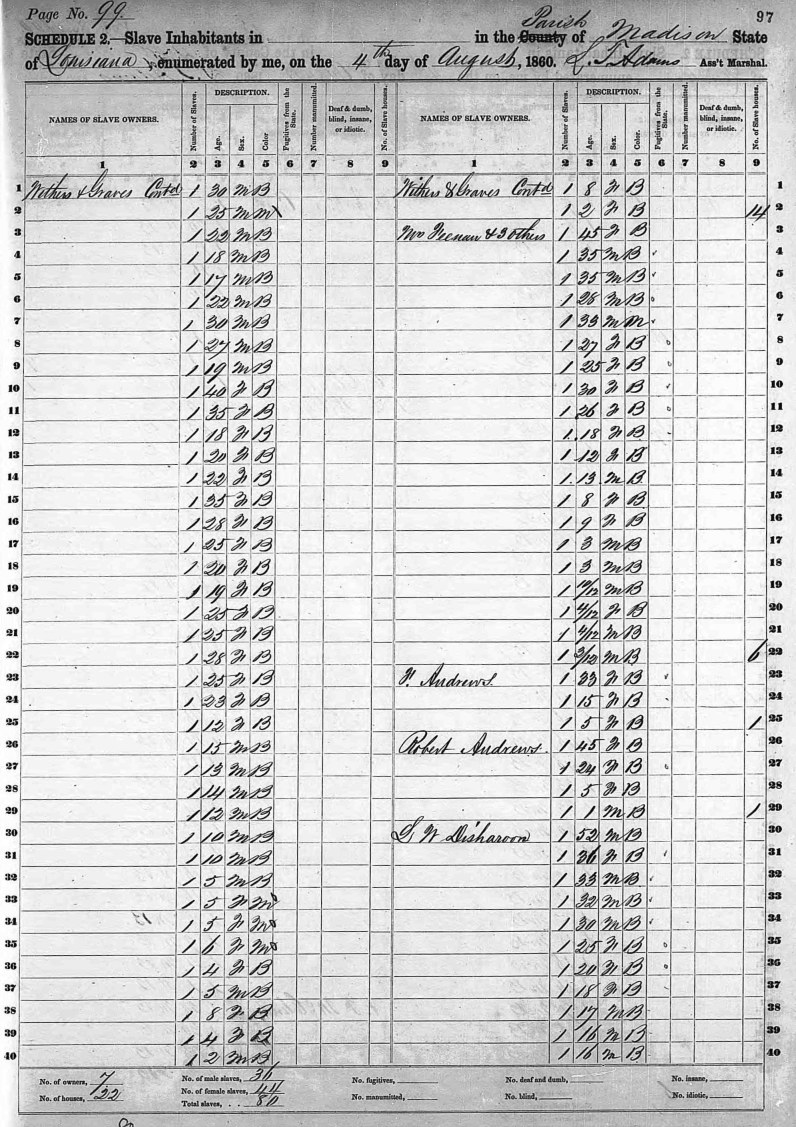 Page No. 99
97
SCHEDULE 2.—Slave Inhabitants in in the County Parish of Madison State
of Louisiana, enumerated by me, on the 4th day of August, 1860. L. T. Adams Ass't Marshal.
NAMES OF SLAVE OWNERS. Number of Slaves. DESCRIPTION. Age. Sex. Color Fugitives from the State. Number manumitted. Deaf & dumb, blind, insane, or idiotic. No. of Slave houses. NAMES OF SLAVE OWNERS. Number of Slaves. DESCRIPTION. Age. Sex. Color. Fugitives from the State. Number manumitted. Deaf & dumb, blind, insane, or idiotic. No. of Slave houses.
1 2 3 4 5 6 7 8 9 1 2 3 4 5 6 7 8 9
1 Withers & Graves Contd 1 30 M B Withers & Graves Contd 1 8 F B 1
2 1 25 M M 1 2 F B 14 2
3 1 22 M B Mrs & 3 others 1 45 F B 3
4 1 18 M B 1 35 M B 4
5 1 17 M B 1 35 M B 5
6 1 22 M B 1 28 M B 6
7 1 30 M B 1 33 M M 7
8 1 27 M B 1 27 F B 8
9 1 19 M B 1 25 F B 9
10 1 40 F B 1 30 F B 10
11 1 35 F B 1 26 F B 11
12 1 18 F B 1 18 F B 12
13 1 20 F B 1 12 F B 13
14 1 22 F B 1 13 M B 14
15 1 35 F B 1 8 F B 15
16 1 28 F B 1 9 F B 16
17 1 25 F B 1 3 M B 17
18 1 20 F B 1 3 M B 18
19 1 19 F B 1 M B 19
20 1 25 F B 1 4/12 F B 20
21 1 25 F B 1 4/12 M B 21
22 1 28 F B 1 M B 6 22
23 1 25 F B Andrews. 1 33 F B 23
24 1 23 F B 1 15 F B 24
25 1 12 F B 1 5 F B 1 25
26 1 15 M B Robert Andrews. 1 45 F B 26
27 1 13 M B 1 24 F B 27
28 1 14 M B 1 5 F B 28
29 1 12 M B 1 1 M B 1 29
30 1 10 M B W Disharoon 1 52 M B 30
31 1 10 M B 1 36 F B 31
32 1 5 M B 1 33 M B 32
33 1 5 F M 1 32 M B 33
34 1 5 F M 1 30 M B 34
35 1 6 F M 1 25 F B 35
36 1 4 F B 1 20 F B 36
37 1 5 M B 1 18 F B 37
38 1 8 F B 1 17 M B 38
39 1 4 F B 1 16 M B 39
40 1 2 M B 1 16 M B 40
No. of owners, 7 No. of male slaves, 36 No. fugitives, No. deaf and dumb, No. insane,
No. of houses, 22 No. of female slaves, 44 No. manumitted, No. blind, No. idiotic,
Total slaves, . . 80